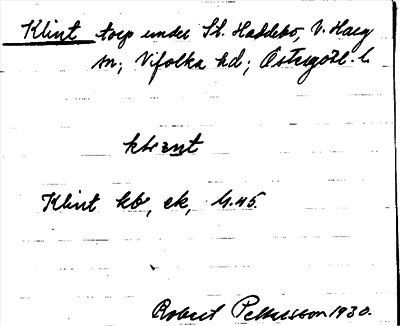 Klint torp under St. Haddebo, V. Harg
sn; Vifolka hd; Östergötl. l.
Klint kb, ek, G.45.
Robert Pettersson 1930.